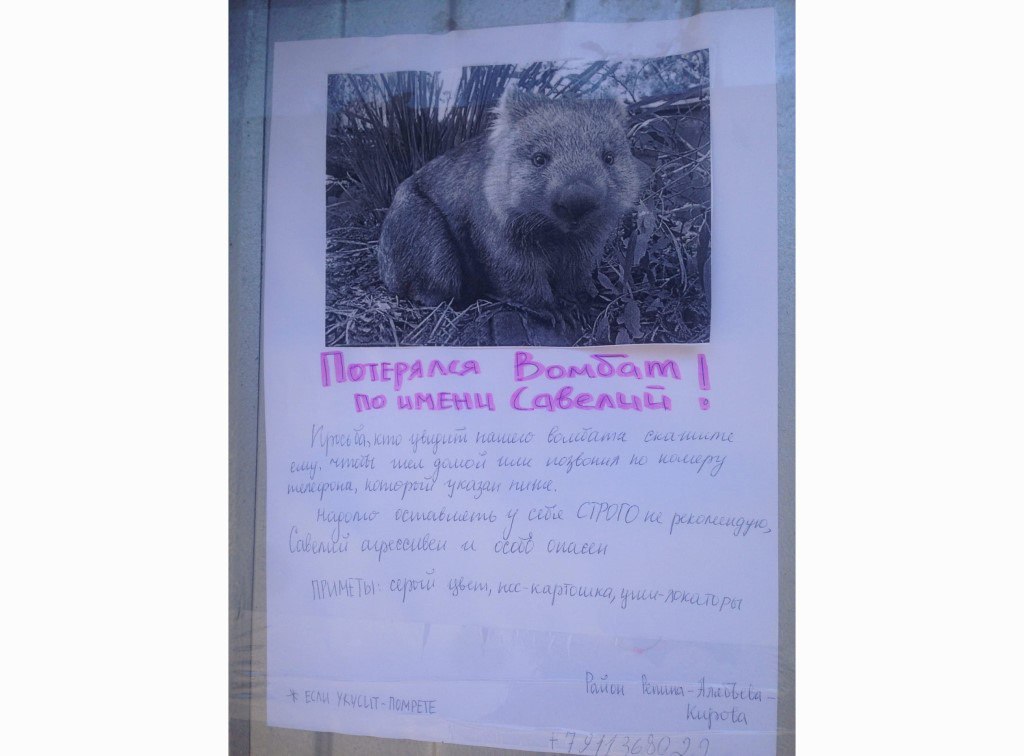 Потерялся Вомбат!
по имени Савелий
Просьба, кто увидит нашего вомбата скажите
ему, чтобы шел домой или позвонил по номеру
телефона, который указан ниже.
Надолго оставлять у себя СТРОГО не рекомендую,
Савелий агрессивен и особо опасен
ПРИМЕТЫ: серый цвет, нос-картошка, уши-локаторы
* ЕСЛИ УКУСИТ-ПОМРЕТЕ
Район Репина-Алябьева-
Кирова